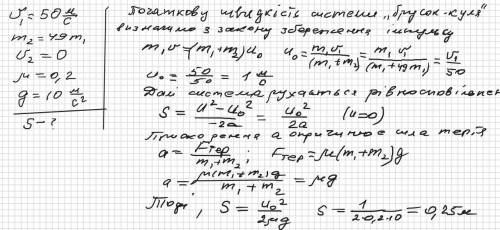 υ₁ = 50 м/с
m₂ = 49m₁
υ₂ = 0
μ = 0,2
g = 10 м/с²
S - ?
Початкову швидкість системи „брусок-куля"
визначимо з закону збереження імпульсу
m₁υ = (m₁+m₂)u₀ u₀ = m₁υ₁/(m₁+m₂) = m₁υ₁/(m₁+49m₁) = υ₁/50
u₀ = 50/50 = 1 м/с
Далі система рухається рівносповільнен
S = (u²-u₀²)/(-2a) = u₀²/2a (u=0)
Прискорення а спричинює сила тертя
a = Fтер/(m₁+m₂) ; Fтер = μ(m₁+m₂)g
a = μ(m₁+m₂)g/(m₁+m₂) = μg
Тоді, S = u₀²/2μg S = 1/2·0,2·10 = 0,25м